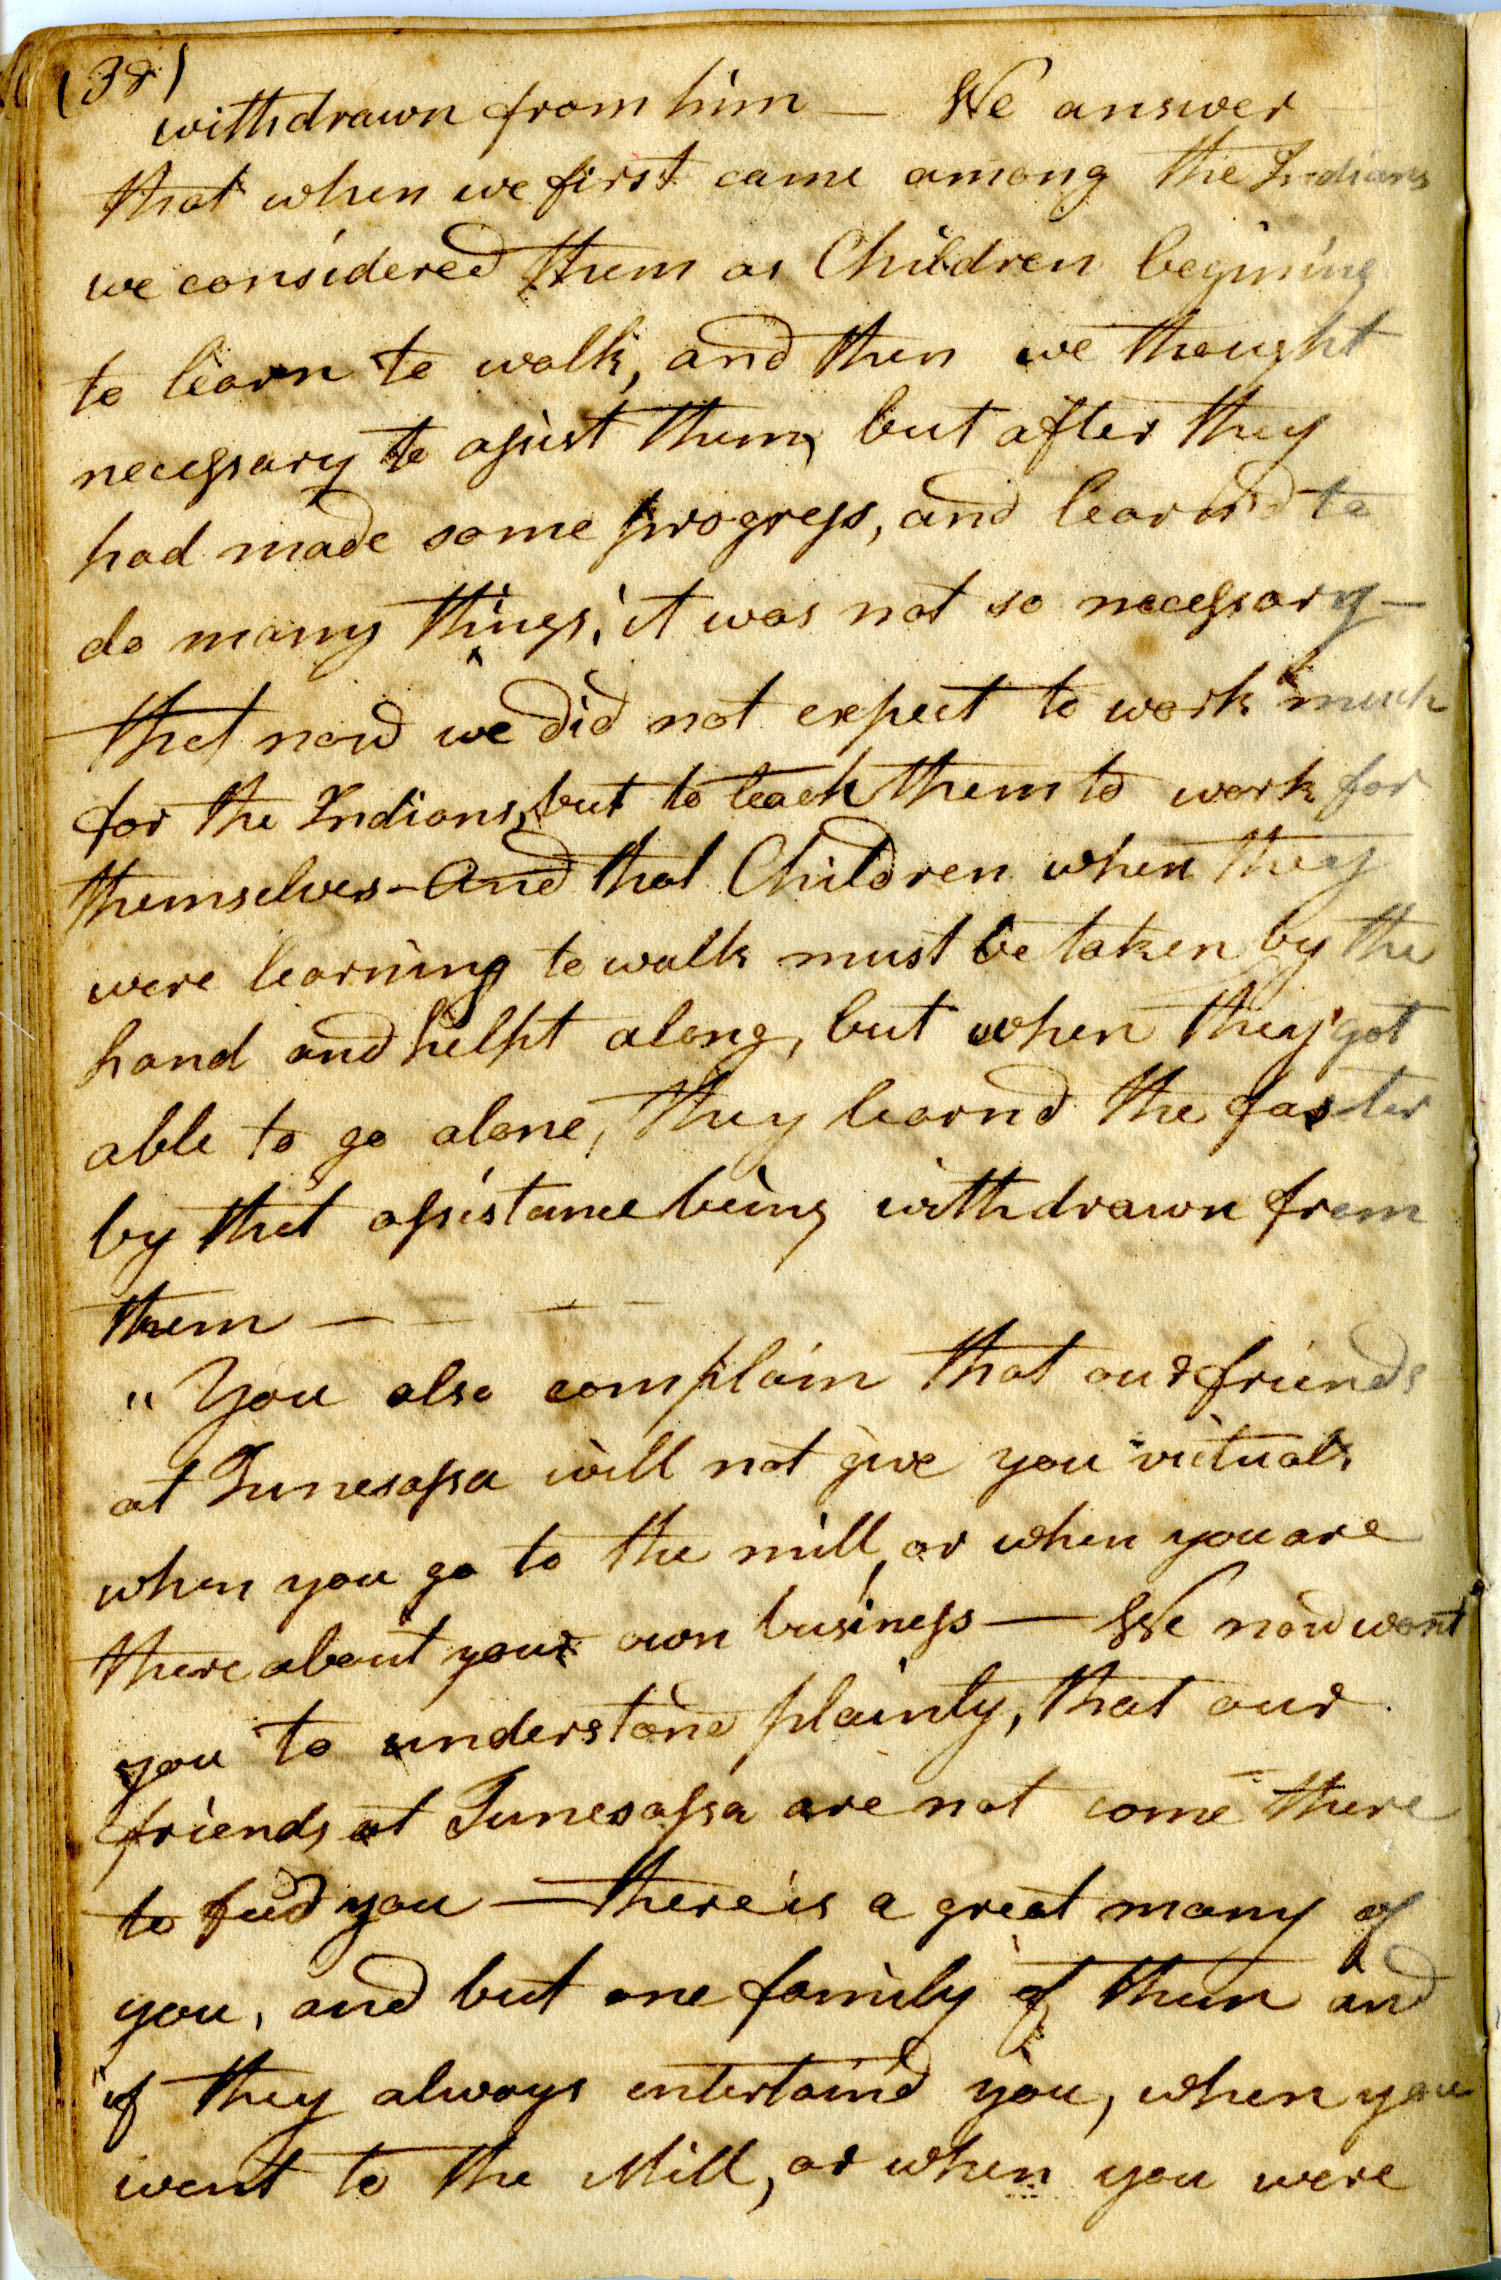 (38)
withdrawn from him — We answer
that when we first came among the Indians
we considered them as Children begining
to learn to walk, and then we thought
necessary to assist them, but after they
had made some progress, and learn'd to
do many things, it was not so necessary —
that now we did not expect to work much
for the Indians, but to teach them to work for
themselves - And that Children when they
were learning to walk must be taken by the
hand and helpt along, but when they got
able to go alone, they learnd the faster
by that assistance being withdrawn from
them —
" You also complain that our friends
at Tunesassa will not give you victuals
when you go to the mill, or when you are
there about your own business — We now want
you to understand plainly, that our
friends at Tunesassa are not come there
to feed you — there is a great many of
you, and but one family of them and
if they always entertain'd you, when you
went to the Mill, or when you were